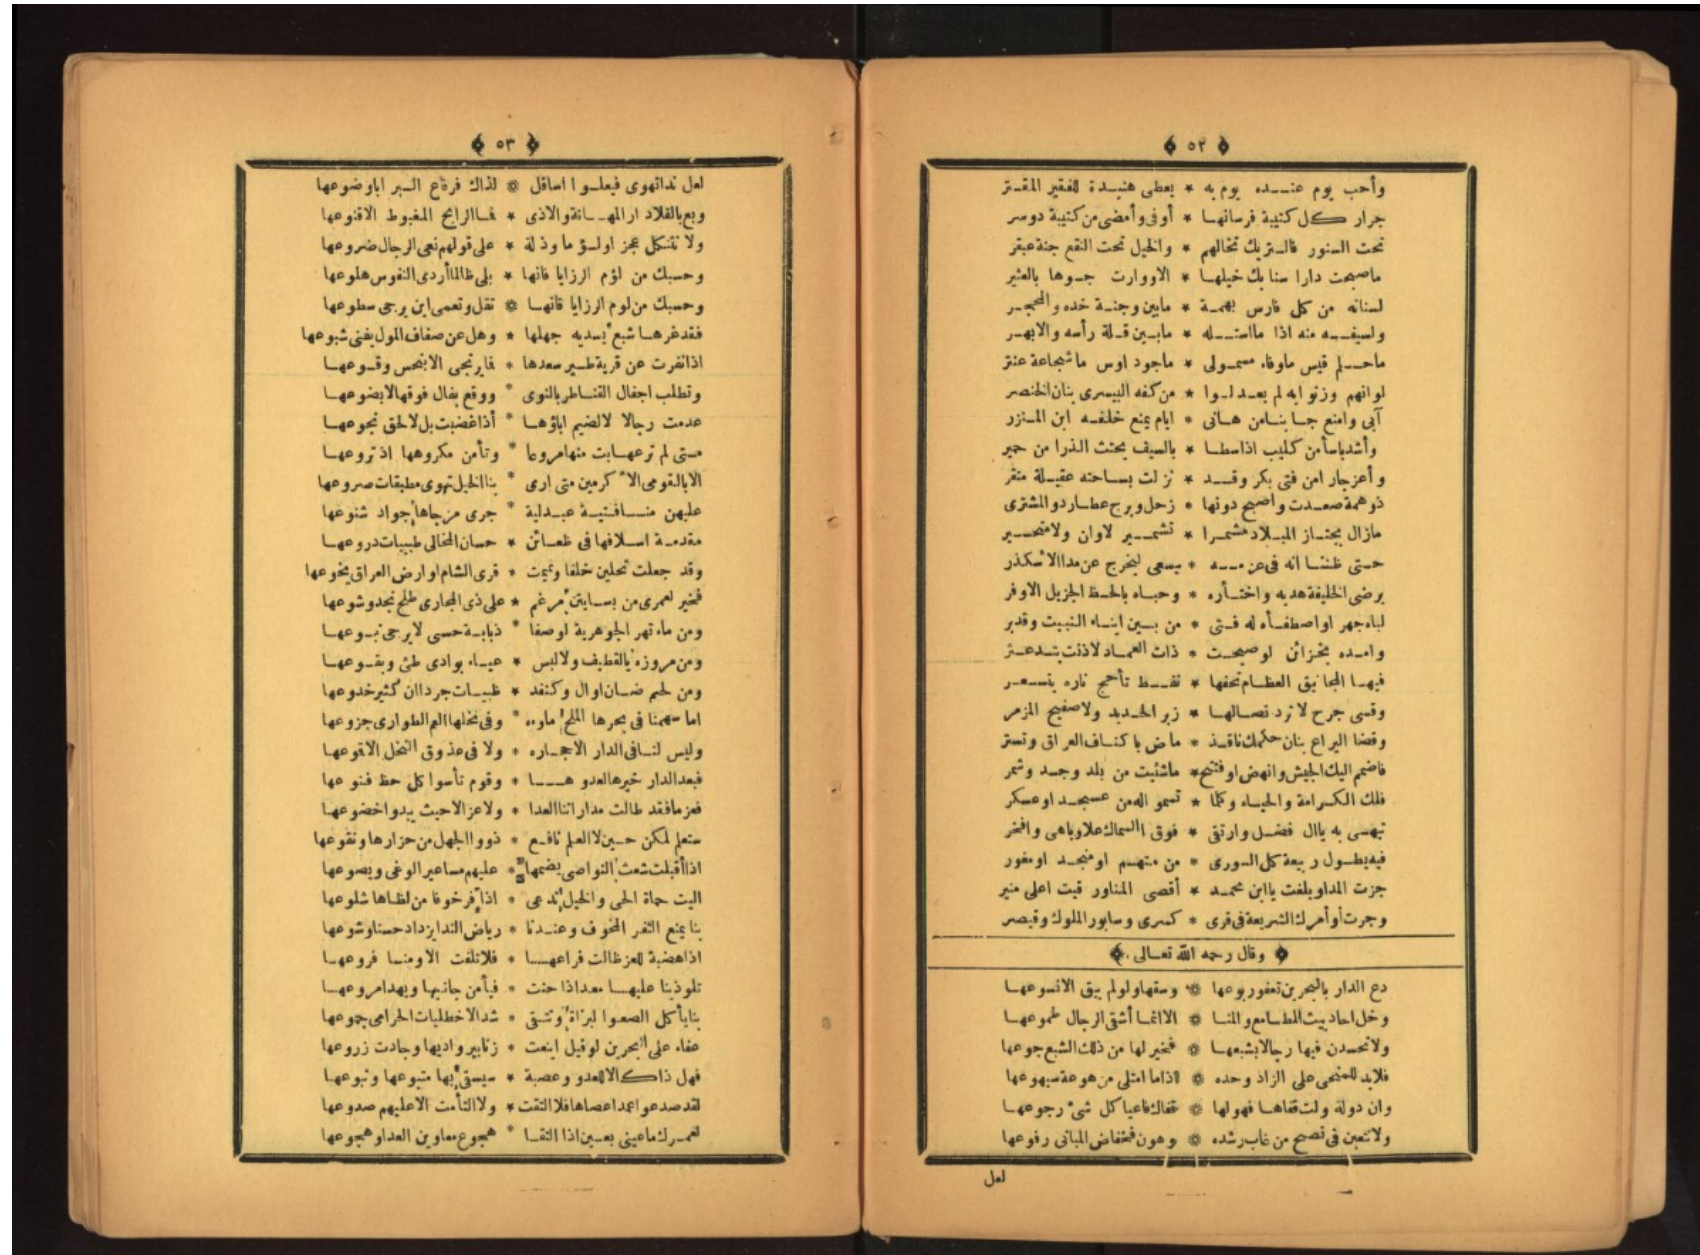 ﴿ ٥٢ ﴾
وأحب يوم عنده يوم به * يعطى هنيدة للفقير المقتر
جرار كل كتيبة فرسانها * أوفى وأمضى من كتيبة دوسر
تحت السنور فالتريك تخالهم * والخيل تحت النقع جنة عبقر
ماصبحت دارا سنابك خيلها * الا ووارت جوها بالعثير
لسنانه من كل فارس بهمة * مابين وجنة خده والمحجر
ولسيفه منه اذا مااستله * مابين قلة رأسه والابهر
ماحلم قيس ماوفاء سمولى * ماجود اوس ماشجاعة عنتر
لوانهم وزنوا به لم يعدلوا * من كفه اليسرى بنان الخنصر
آبى وامنع جانبا من هانى * ايام يمنع خلفه ابن المنزر
وأشد باسأ من كليب اذا سطا * بالسيف يجتث الذرا من حمير
وأعز جارا من فتى بكر وقد * نزلت بساحته عقيلة منقر
ذو همة صعدت واصبح دونها * زحل وبرج عطارد والمشترى
مازال يجتاز البلاد مشمرا * تشمير لاوان ولا متحير
حتى ظننا انه فى عزمه * يسعى ليخرج عن مدا الاسكندر
يرضى الخليفة هديه واختاره * وحباه بالحظ الجزيل الاوفر
لباه جهر اواصطفاه له فتى * من بين ابناء النبيت وقدير
وامده بخزائن لوصبحت * ذات العماد لاذنت بتدعثر
فيها المجانيق العظام تحفها * نفط تأجج ناره يتسعر
وقسى جرح لا ترد نصالها * زبر الحديد ولا صفيح المزمر
وقضا اليراع بنان حكمك نافذ * ماض باكناف العراق وتستر
فاضمم اليك الجيش وانهض او فتح * ماشئيت من بلد وجد وشمر
فلك الكرامة والحياء وكلما * تسمو اله من عسجد او عسكر
تيهى به ياال فضل وارتقى * فوق السماك علا وباهى وافخر
فيه يطول ربيعة كل الورى * من متهم او منجد او مغور
جزت المدا وبلغت ياابن محمد * أقصى المناور قيت اعلى منير
وجرت أوأمرك الشريعة فى قرى * كسرى وسابور الملوك وقيصر
﴿ وقال رحمه الله تعالى . ﴾
دع الدار بالبحرين تعفور بوعها * وسقها ولو لم يبق الانسوعها
وخل احاديث المطامع والمنا * الا انما أشقى الرجال طموعها
ولا تحسدن فيها رجالا بشبعها * فخير لها من ذلك الشبع جوعها
فلا بد للمنحى على الزاد وحده * اذاما امتلى من هوعة سيهوعها
وان دولة ولت قفاها فهولها * قفاك فاعيا كل شئ رجوعها
ولا تتعبن فى نصح من غاب رشده * وهون فخفاض المبانى رفوعها
لعل
﴿ ٥٣ ﴾
لعل نداتهوى فيعلوا اساقل * لذاك فرقاع البر اياوضوعها
وبع بالقلا دار المهانة والاذى * فما الرابح المغبوط الاقنوعها
ولا تتكل عجز اولؤما وذلة * على قولهم نعى الرجال ضروعها
وحسبك من لؤم الرزايا فانها * بلى ظالما أردى النفوس هلوعها
وحسبك من لوم الرزايا فانها * تقل وتعمى اين يرجى سطوعها
فقد غرها شبع بسديه جهلها * وهل عن صفاف المول يغنى شبوعها
اذانفرت عن قرية طير سعدها * فاير تجى الا بنحس وقوعها
وتطلب اجفال القناطر بالنوى * ووقع بغال فوقها لا يضوعها
عدمت رجالا لا لضيم اباؤها * أذا غضبت بل لا لحق نجوعها
متى لم ترعها بت منها مروعا * وتأمن مكروهها اذ تروعها
الا يالقومى الاكرمين متى ارى * بنا الخيل تهوى مطبقات صروعها
عليهن منا فتية عبدلية * جرى مزجاها جواد شنوعها
مقدمة اسلافها فى ظعائن * حسان المخالى طيبات دروعها
وقد جعلت تحلين خلفا ويممت * قرى الشام اوارض العراق يخوعها
فخير لعمرى من بساتين مرغم * على ذى المجارى طلح نجد وشوعها
ومن ماء نهر الجوهرية لوصفا * ذبابة حسى لا يرجى نبوعها
ومن مروزه بالقطيف ولا لبس * عياء بوادى طئ وبقوعها
ومن لحم ضان اوال وكنفد * ظبيات جردان كثير خدوعها
اما سهمنا فى بحرها الملح ماوه * وفى نخلها العم الطوارى جزوعها
وليس لنا فى الدار الاجحاره * ولا فى عذوق النخل الاقوعها
فبعد الدار خيرها العدو ها * وقوم تأسوا كل حظ فنوعها
فعزما فقد طالت مداراتنا العدا * ولا عز الا حيث يبدو اخضوعها
ستعلم لمكن حين لا العلم نافع * ذووا الجهل من حزارها ونقوعها
اذا أقبلت شعث النواصى يضمها * عليهم مساعير الوغى ويصوعها
اليت حماة الحى والخيل تدعى * اذا فرخوفا من لظاها شلوعها
بنا يمنع الثغر المخوف وعندنا * رياض الندا يزداد حسنا وشوعها
اذا هضبة للعز طالت فراعها * فلا تلفت الا ومنا فروعها
تلوذ بنا عليها معدا ذا حنت * فيأمن جانيها ويهدا مروعها
بنا يأكل الصعوا لبزاة وتتقى * شدا الاخطليات الحرامى جموعها
عفاء على البحرين لوقيل اينعت * زنابير واديها وجادت زروعها
فهل ذاك الا للعدو وعصبة * سيسقى بها متبوعها وتبوعها
لقد صدعوا عمدا عصاها فلا التقت * ولا التأمت الا عليهم صدوعها
لعمرك ماعينى بعين اذا التقا * هجوع معاوين العدا وهجوعها